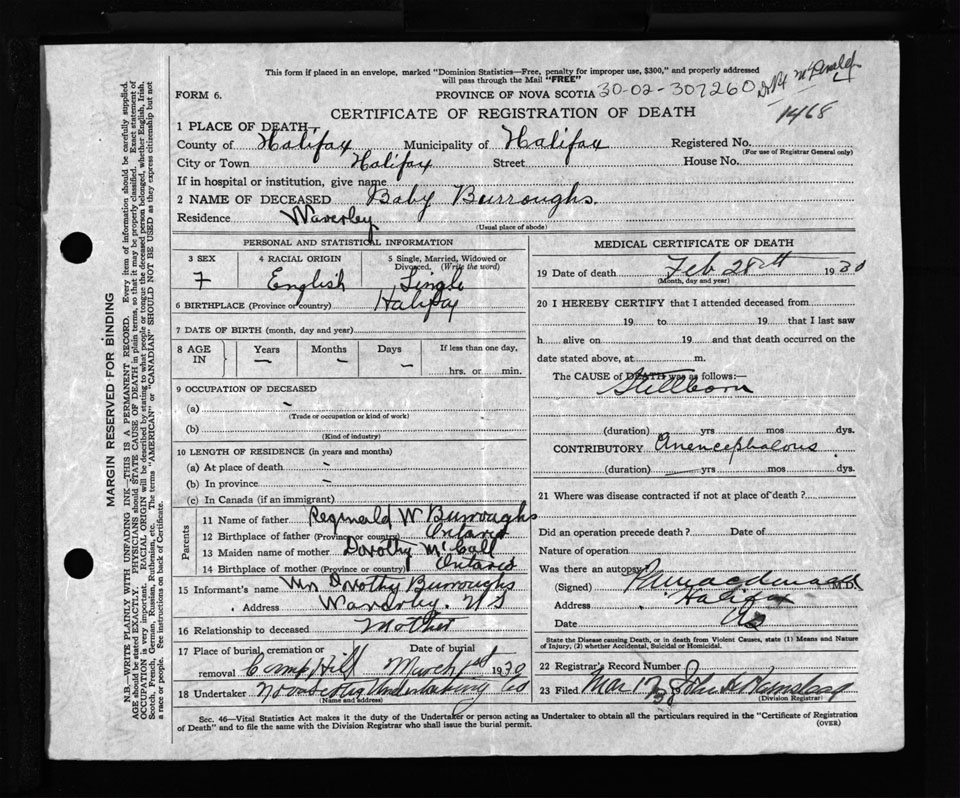 This form if placed in an envelope, marked "Dominion Statistics—Free, penalty for improper use, $300," and properly addressed
will pass through the Mail "FREE"
FORM 6.
PROVINCE OF NOVA SCOTIA 30-02-307260
1468
CERTIFICATE OF REGISTRATION OF DEATH
1 PLACE OF DEATH—
County of Halifax Municipality of Halifax Registered No.
(For use of Registrar General only)
City or Town Halifax Street House No.
If in hospital or institution, give name
2 NAME OF DECEASED Baby Burroughs
Residence Waverley
(Usual place of abode)
PERSONAL AND STATISTICAL INFORMATION
3 SEX 4 RACIAL ORIGIN 5 Single, Married, Widowed or
Divorced. (Write the word)
F English Single
6 BIRTHPLACE (Province or country) Halifax
7 DATE OF BIRTH (month, day and year)
8 AGE IN Years Months Days If less than one day,
— — — hrs. or min.
9 OCCUPATION OF DECEASED
(a) -
(Trade or occupation or kind of work)
(b)
(Kind of industry)
10 LENGTH OF RESIDENCE (in years and months)
(a) At place of death -
(b) In province -
(c) In Canada (if an immigrant)
Parents
11 Name of father Reginald W Burroughs
12 Birthplace of father (Province or country) Ontario
13 Maiden name of mother Dorothy McCall
14 Birthplace of mother (Province or country) Ontario
15 Informant's name Mrs Dorothy Burroughs
Address Waverley. NS
16 Relationship to deceased Mother
17 Place of burial, cremation or Date of burial
removal Camp Hill March 1st 1930
18 Undertaker Nova Scotia Undertaking Co
(Name and address)
MEDICAL CERTIFICATE OF DEATH
19 Date of death Feb 28th 1930
(Month, day and year)
20 I HEREBY CERTIFY that I attended deceased from
19 to 19 that I last saw
h alive on 19 and that death occurred on the
date stated above, at m.
The CAUSE of DEATH was as follows:—
Stillborn
(duration) yrs mos dys.
CONTRIBUTORY Anencephalous
(duration) yrs mos dys.
21 Where was disease contracted if not at place of death?
Did an operation precede death? Date of
Nature of operation
Was there an autopsy?
(Signed) M.D.
Address Halifax
Date
State the Disease causing Death, or in death from Violent Causes, state (1) Means and Nature
of Injury, and (2) whether Accidental, Suicidal or Homicidal.
22 Registrar's Record Number
23 Filed Mar 17
(Division Registrar)
Sec. 46—Vital Statistics Act makes it the duty of the Undertaker or person acting as Undertaker to obtain all the particulars required in the "Certificate of Registration
of Death" and to file the same with the Division Registrar who shall issue the burial permit.
(OVER)
MARGIN RESERVED FOR BINDING
N.B.—WRITE PLAINLY WITH UNFADING INK—THIS IS A PERMANENT RECORD. Every item of information should be carefully supplied.
AGE should be stated EXACTLY. PHYSICIANS should STATE CAUSE OF DEATH in plain terms, so that it may be properly classified. Exact statement of
OCCUPATION is very important. RACIAL ORIGIN will be described by stating to what people or tongue the deceased person belonged, whether English, Irish,
Scotch, French, German, Russian, Ruthenian, etc. The terms "AMERICAN" or "CANADIAN" SHOULD NOT BE USED as they express citizenship but not
a race or people. See instructions on back of Certificate.